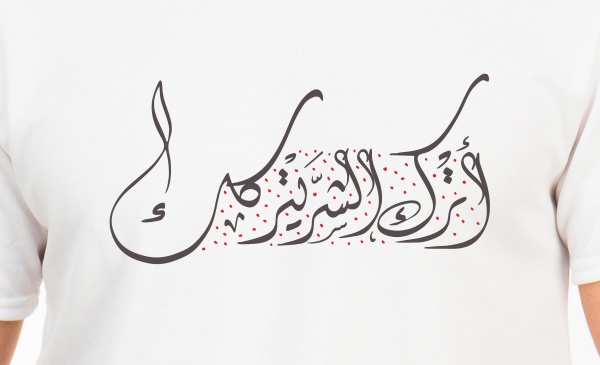 أترك الشر يتركك